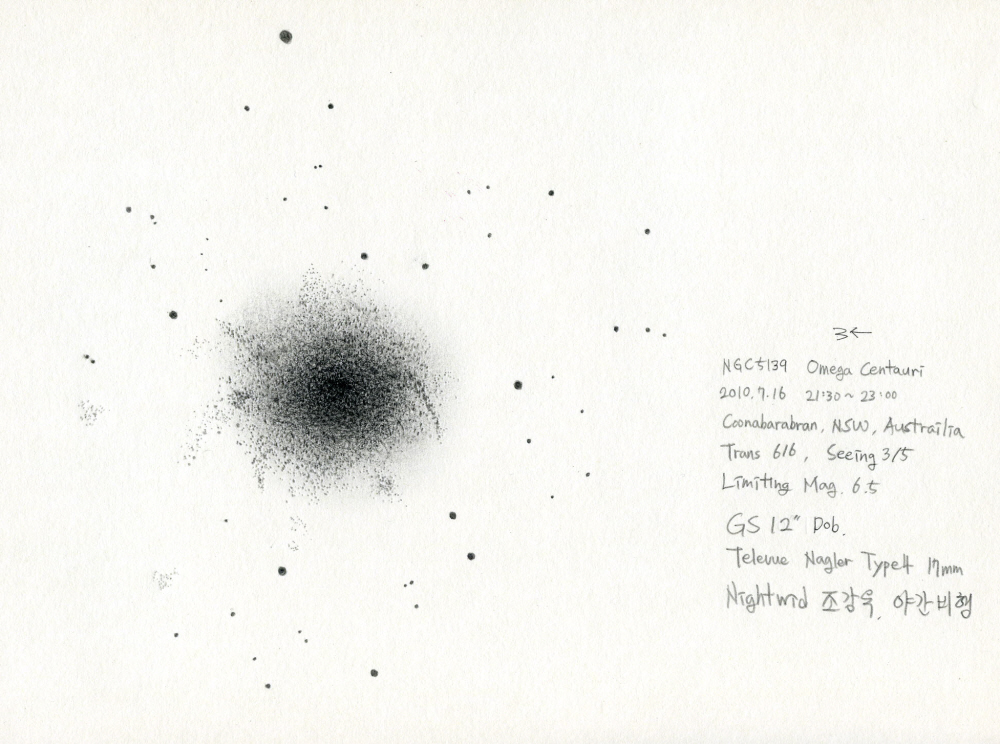 3←
NGC5139 Omega Centauri
2010.7.16 21:30 ~ 23:00
Coonabarabran, NSW, Austrailia
Trans 6/6, Seeing 3/5
Limiting Mag. 6.5
GS 12" Dob.
Televue Nagler Type4 17mm
Nightwid 조강욱, 야간비행